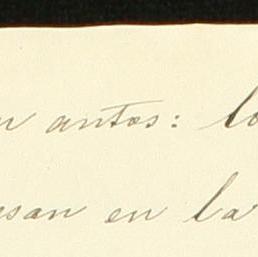 n antos: lo
esan en la